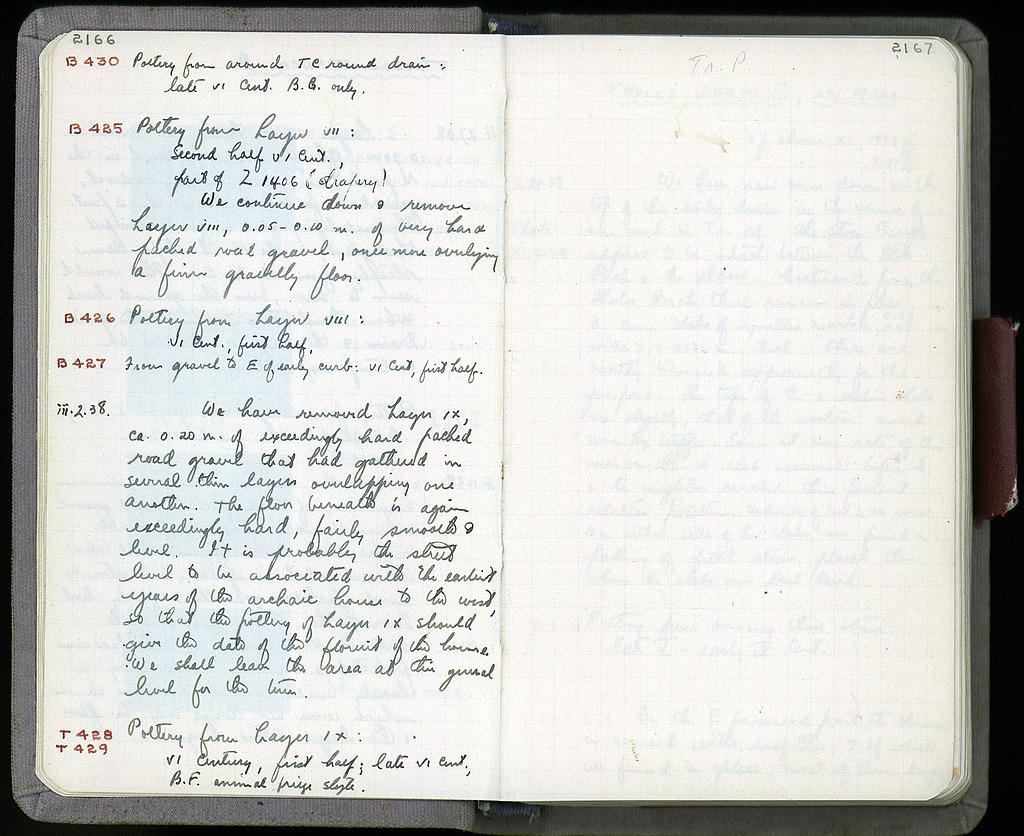 2166
B 430 Pottery from around TC round drain:
late VI Cent. B.C. only.
B 425 Pottery from Layer VII:
Second half VI Cent.,
part of Z 1406 (drapery)
We continue down & remove
Layer VIII, 0.05-0.10 m. of very hard
packed road gravel, once more overlying
a firm gravelly floor.
B 426 Pottery from Layer VIII:
VI Cent., first half.
B 427 From gravel to E of early curb: VI Cent, first half.
III.2.38. We have removed Layer IX,
ca. 0.20 m. of exceedingly hard packed
road gravel that had gathered in
several thin layers overlapping one
another. The floor beneath is again
exceedingly hard, fairly smooth &
level. It is probably the street
level to be associated with the earliest
years of the archaic house to the west,
so that the pottery of Layer IX should
give the date of the floruit of the house.
We shall leave the area at this general
level for the time.
T 428 Pottery from Layer IX:
T 429
VI Century, first half; late VI Cent.,
B.F. animal frieze style.
2167
Tr. P